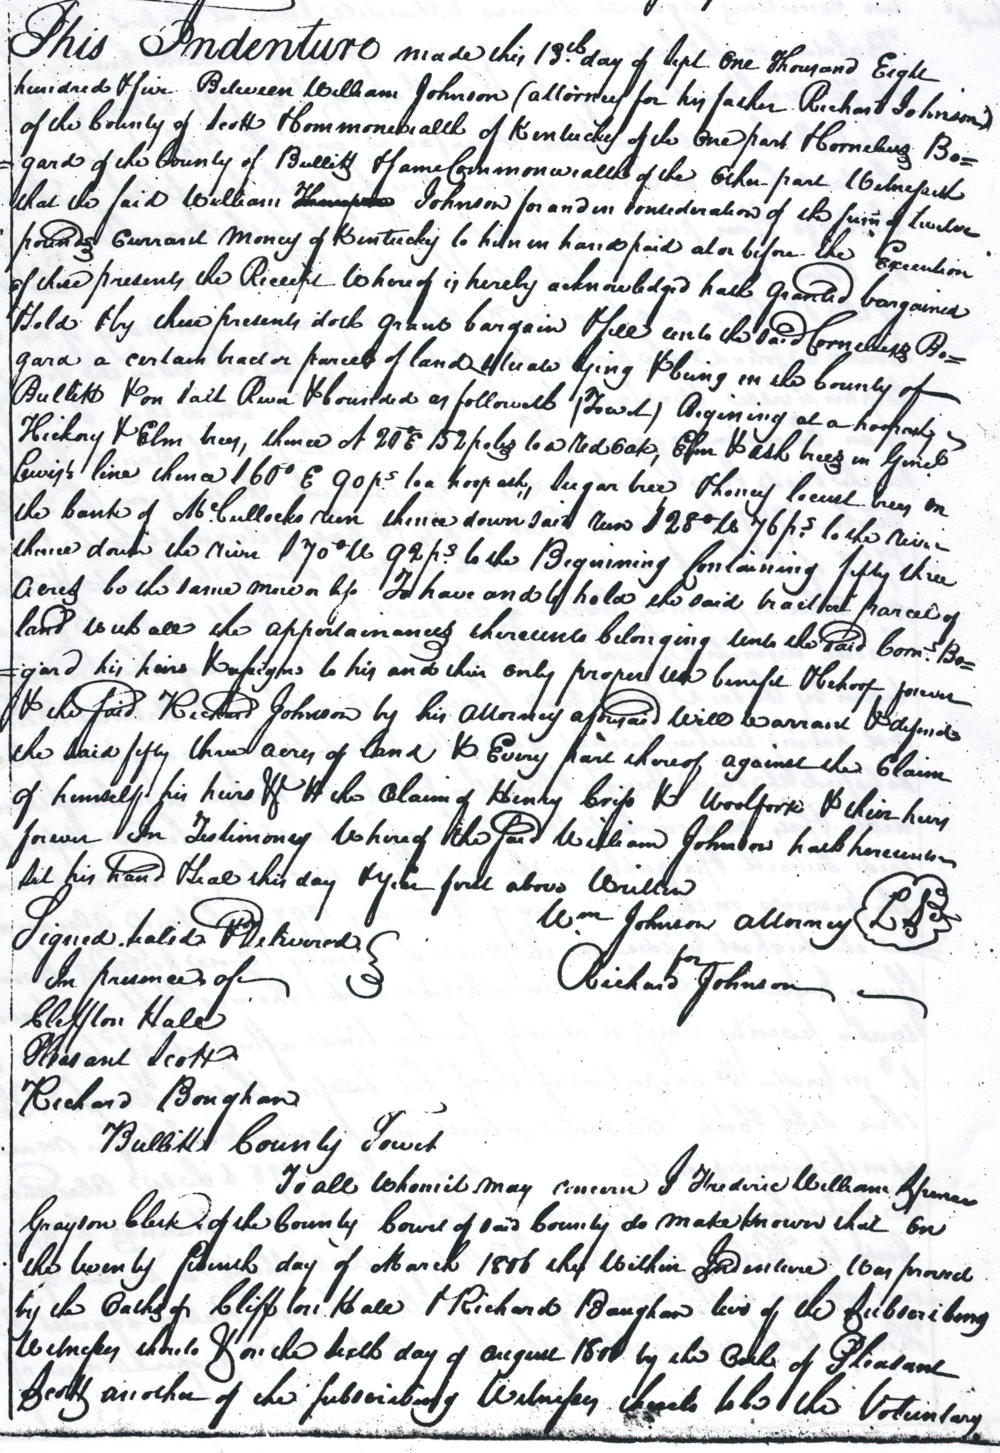 This Indenture made this 13th day of Sept One Thousand Eight
hundred & five Between William Johnson (attorney for his father Richard Johnson)
of the County of Scott & Commonwealth of Kentucky of the One part & Cornelius Bo=
=gard of the County of Bullitt & same Commonwealth of the Other part Witnesseth
that the said William Johnson for and in consideration of the sum of twelve
pounds Currant Money of Kentucky to him in hand paid at or before the Execution
of these presents the Receipt Whereof is hereby acknowledged hath Granted bargained
& Sold & by these presents doth Grant bargain & sell unto the said Cornelius Bo=
gard a certain tract or parcel of land situate lying & being in the County of
Bullitt & on Salt River & bounded as followeth (Towit) Begining at a
Hickory & Elm trees, thence N 20° E 152 poles to a Red Oak, Elm & Ash trees in Genl
Lewis's line thence S 60° E 90 ps to a hoop ash, Sugar tree & honey locust trees on
the bank of McCullocks run thence down said run S 28° W 76 ps to the river
thence down the river S 70° W 92 ps to the Beginning Containing fifty three
Acres be the same more or less To have and to hold the said tract or parcel of
land with all the appertainances thereunto belonging unto the said Corns. Bo=
=gard his heirs & assigns to his and their only proper use benefit & behoof forever
& the said Richard Johnson by his attorney aforesaid Will warrant & defend
the said fifty three acres of land & Every part thereof against the Claim
of himself his heirs & & the Claim of Henry Crist & Woolfork & their heirs
forever In Testimoney Whereof the said William Johnson hath hereunto
set his hand & seal this day & year first above Written
Signed sealed & Delivered Wm Johnson attorney LS
In presence of for Richard Johnson
Cliffton Hale
Pleasant Scott
Richard Baughan
Bullitt County Towit
To all Whom it may concern I Frederic William Spencer
Grayson Clerk of the County Court of said County do make known that on
the twenty day of March 1806 this Within Indenture Was proved
by the Oaths of Cliffton Hale & Richard Baughan two of the Subscribing
Witnesses thereto & on the sixth day of August 1806 by the Oath of Pleasant
Scott another of the subscribing Witnesses thereto to be the Voluntary